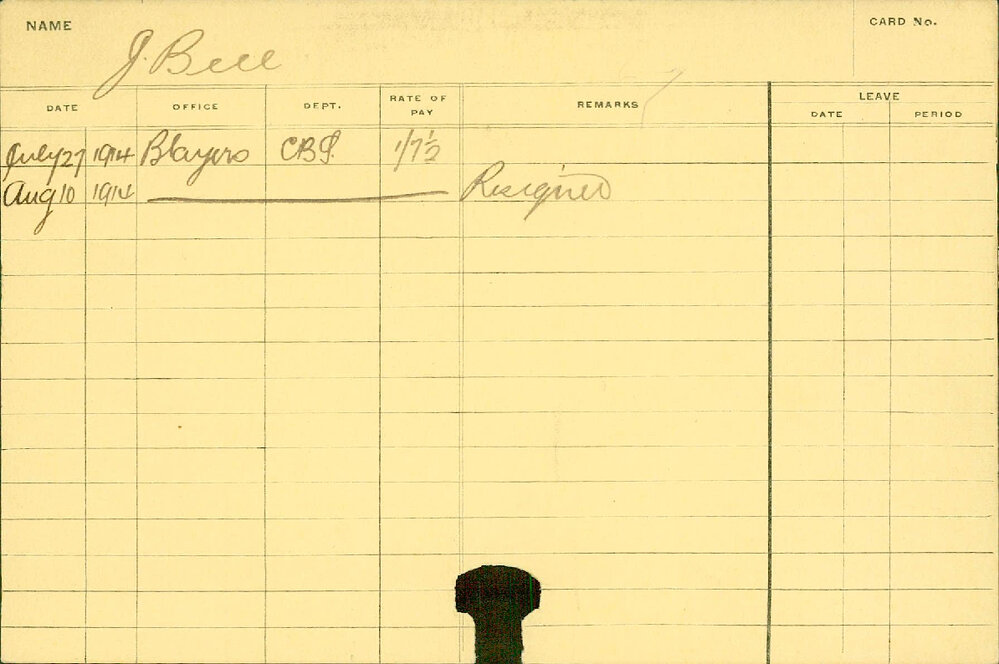 NAME
J. Bell
CARD No.
DATE OFFICE DEPT. RATE OF PAY REMARKS LEAVE
DATE PERIOD
July 27 1914 Blayers 1/7½
Aug 10 1914 Resigned